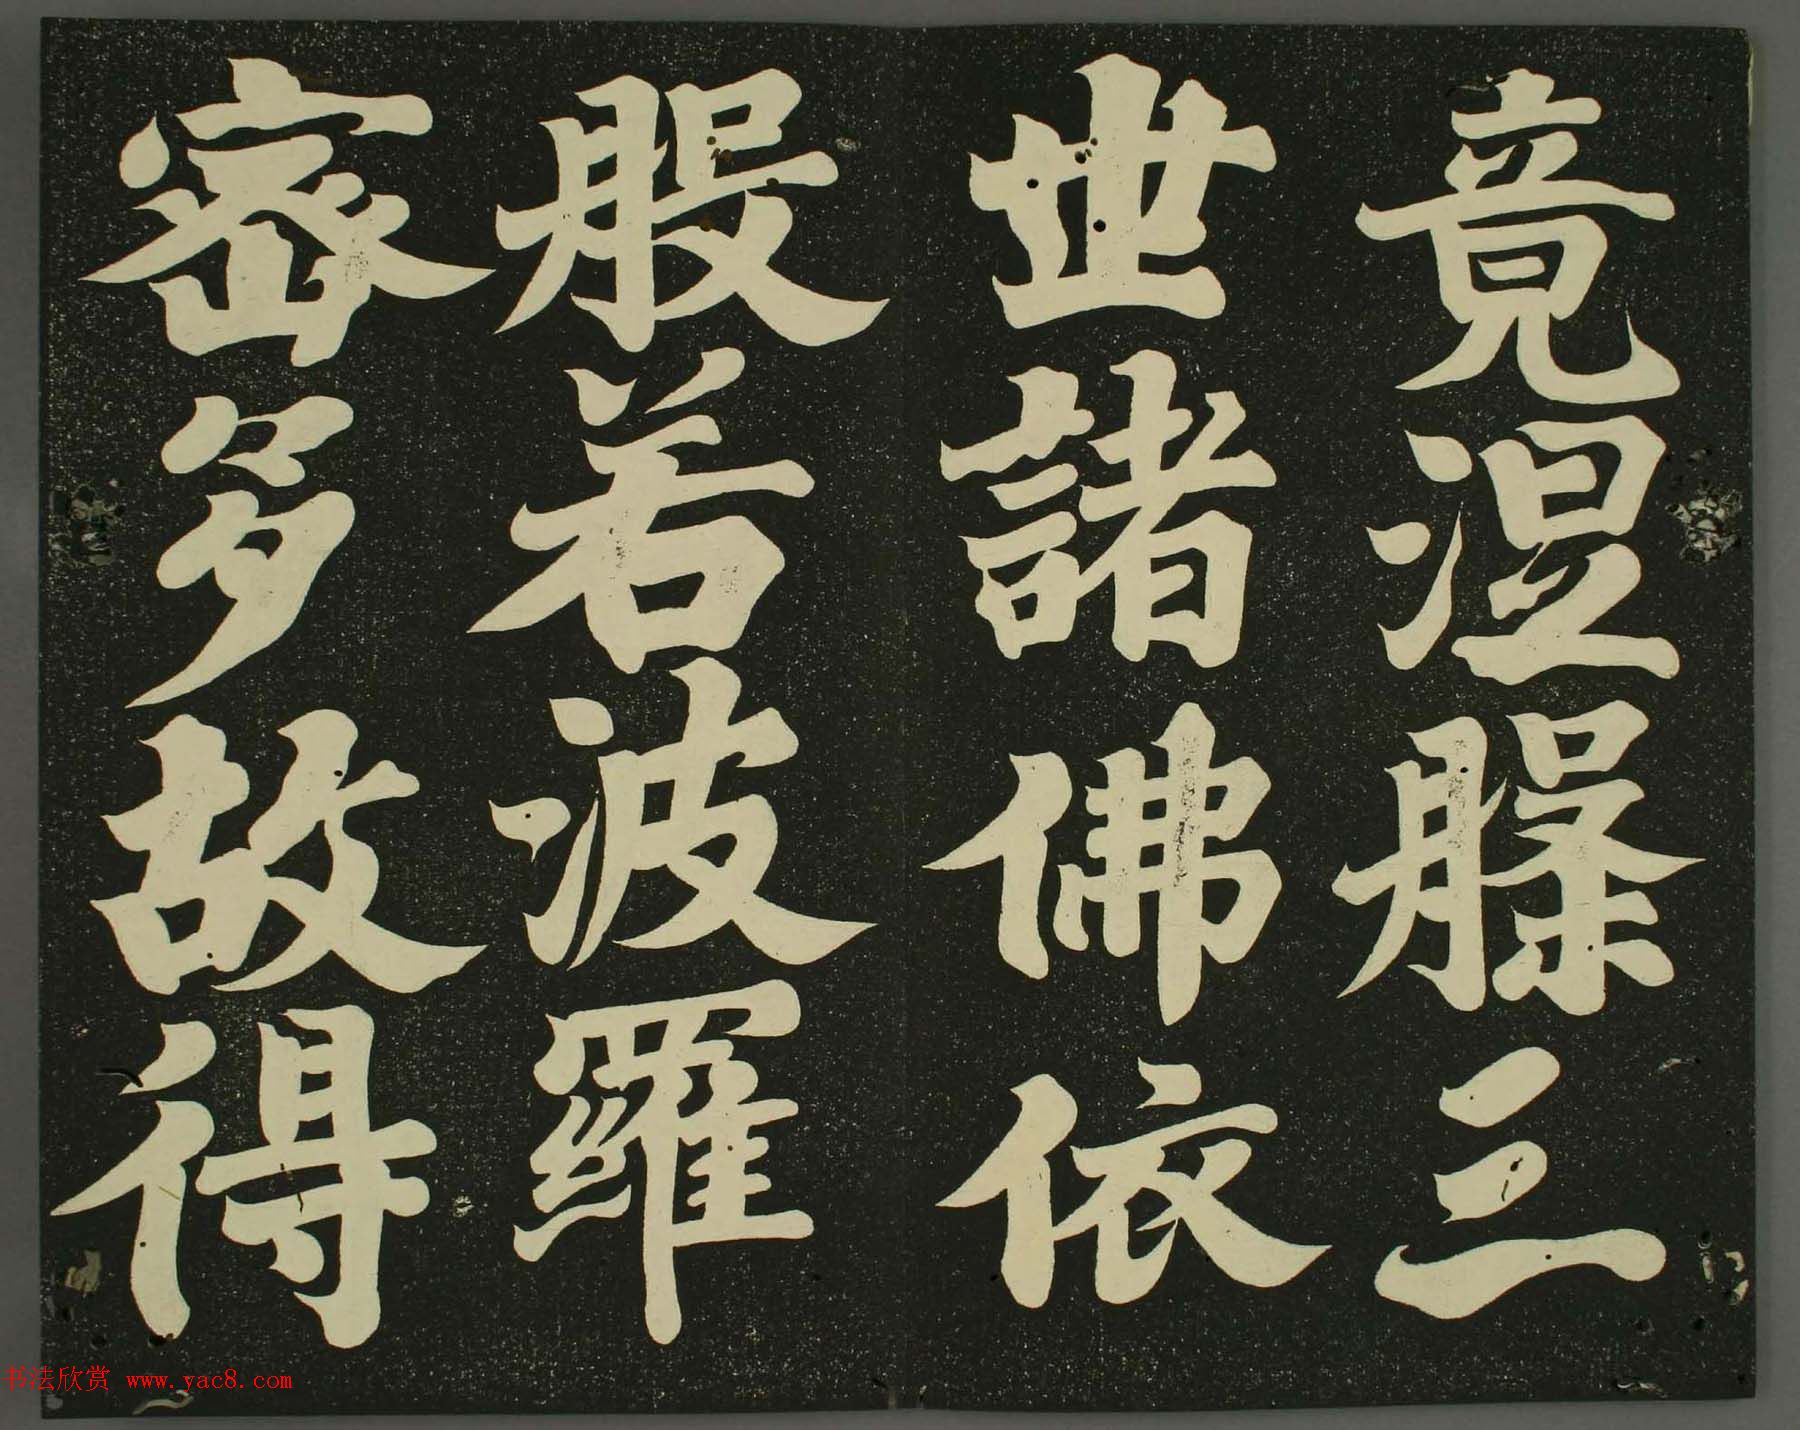 竟涅槃三
世諸佛依
般若波羅
密多故得
书法欣赏 www.yac8.com